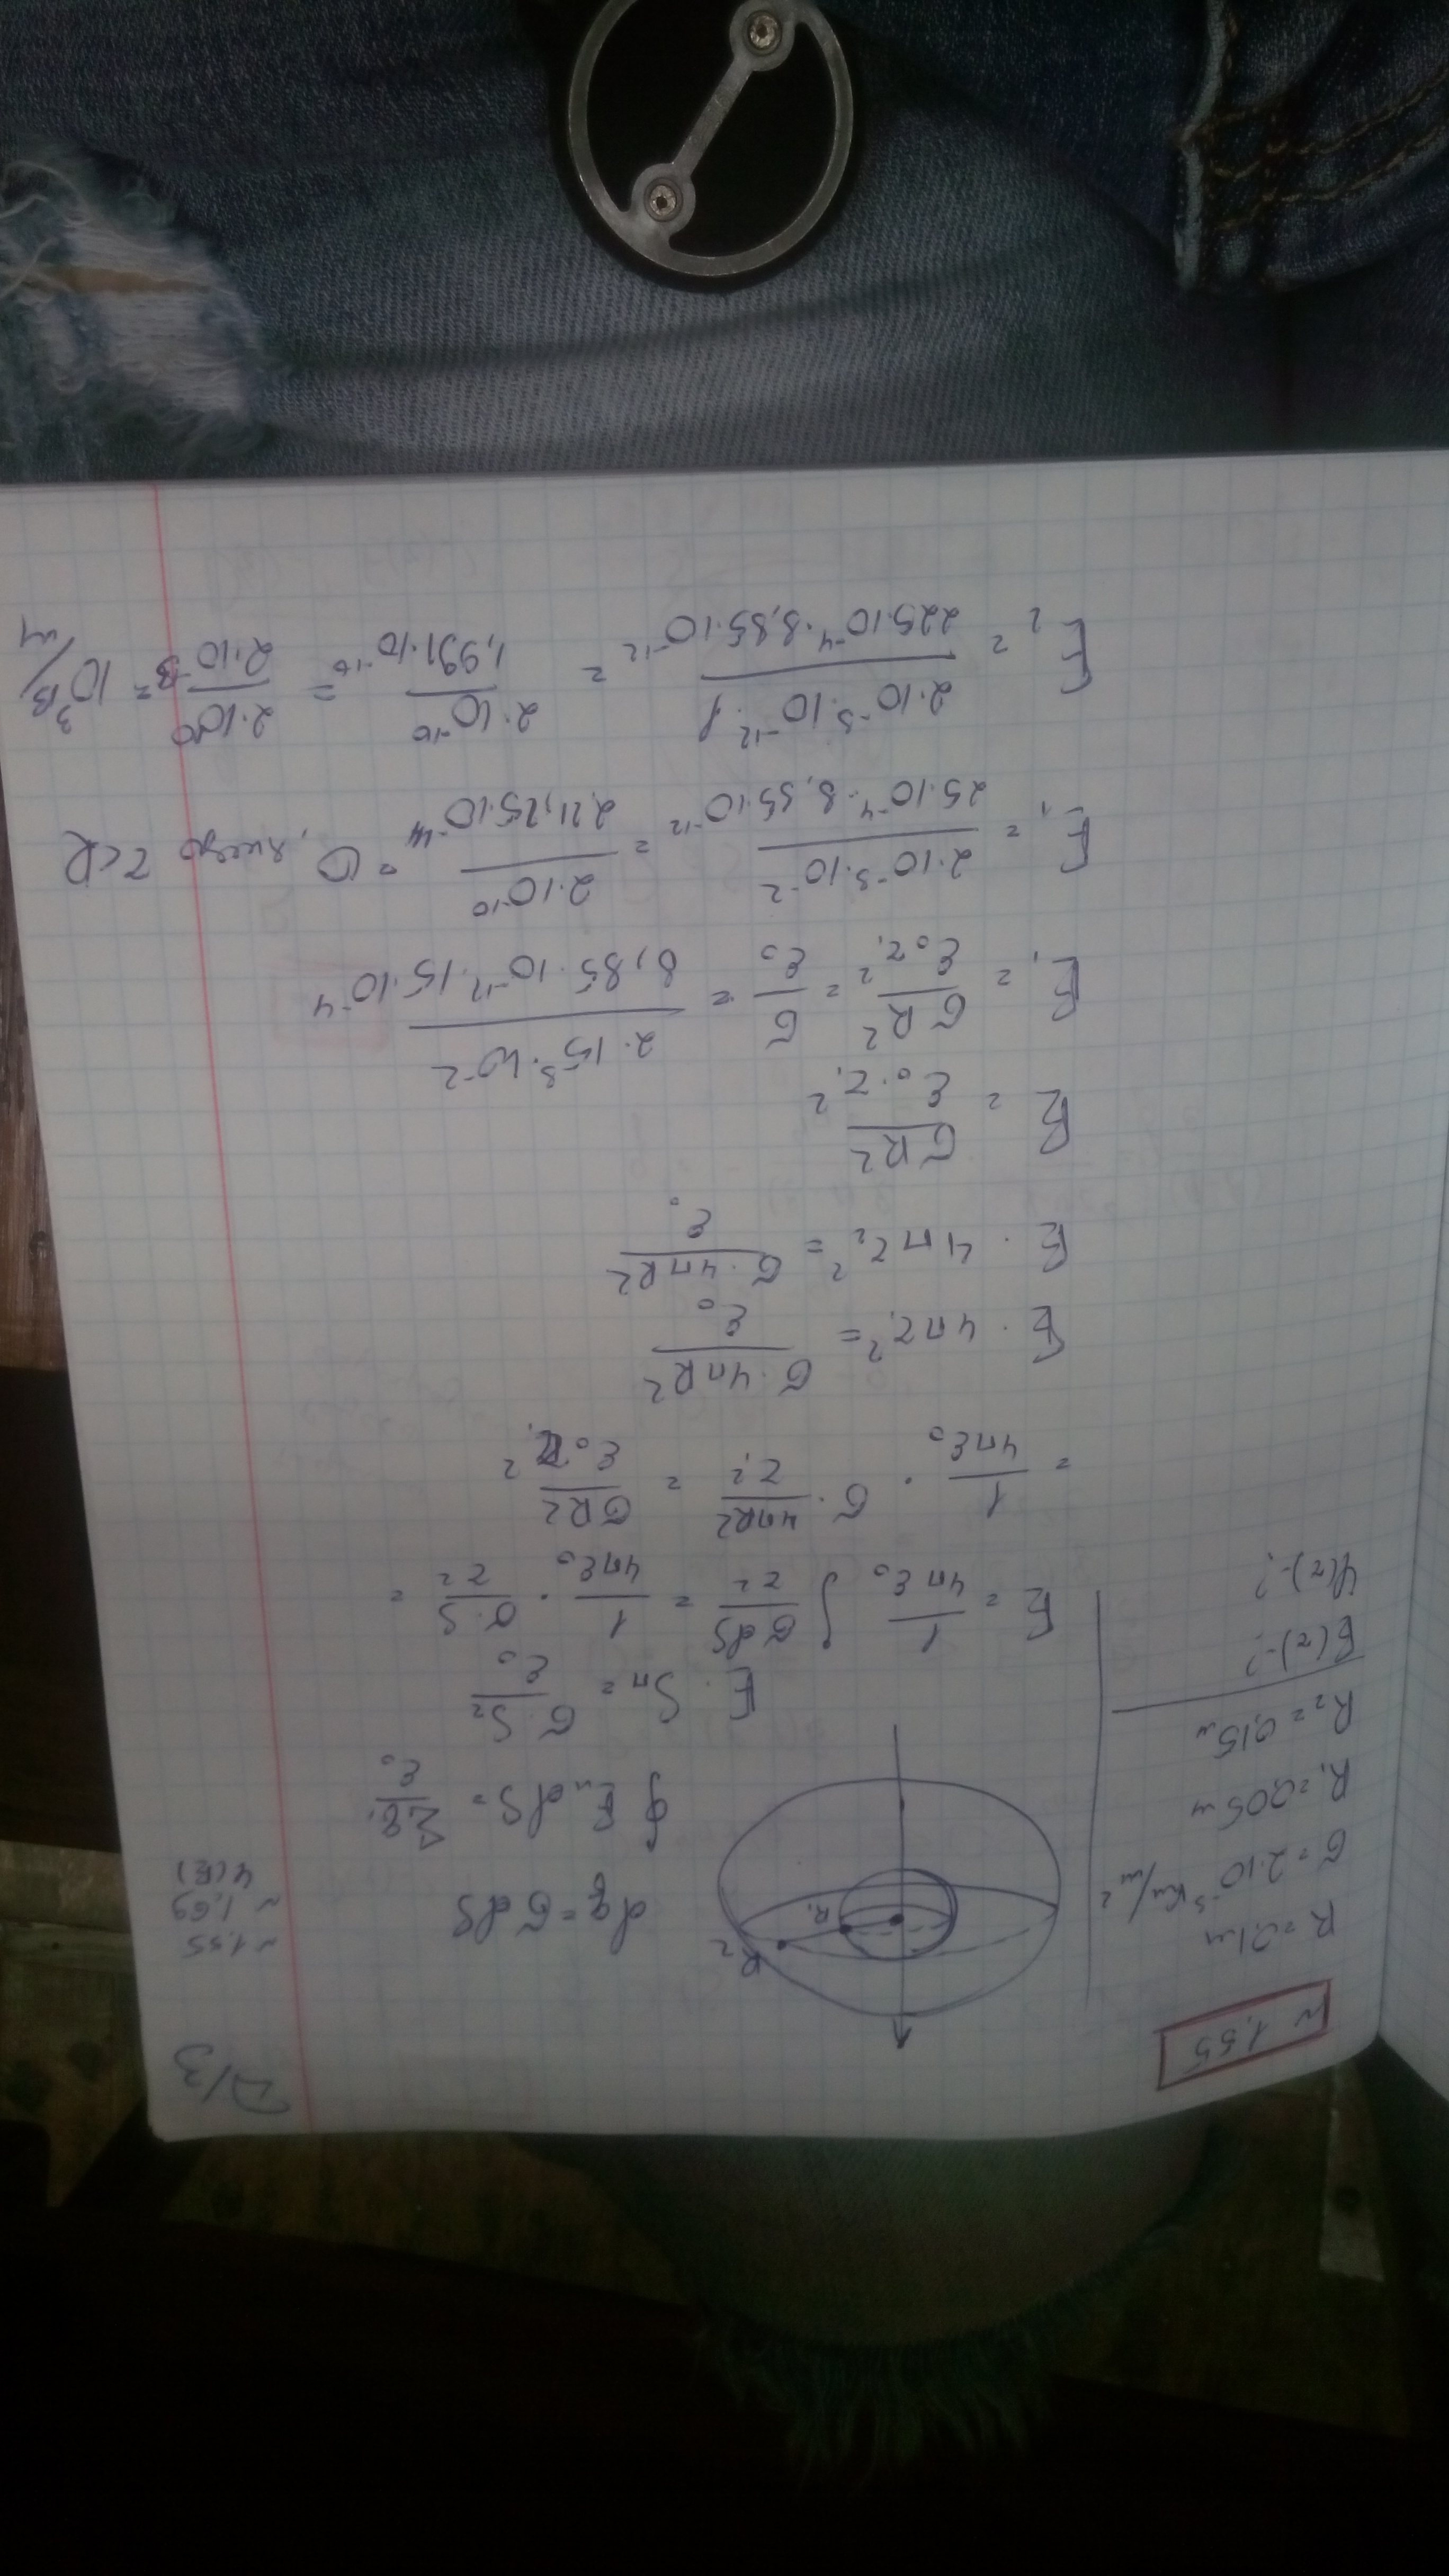 Д/З
~ 1,55
~ 1,55
~ 1,69
φ(R)
R = 0,1м
σ = 2·10⁻⁸ Кл/м²
R₁ = 0,05м
R₂ = 0,15м
E(r) - ?
φ(r) - ?
R₁
R₂
dq = σ dS
∮ Eₙ dS = Σqᵢ/ε₀
E · Sп = σ·S₂/ε₀
E = 1/(4πε₀) ∫ σdS/r² = 1/(4πε₀) · σ·S/r² =
= 1/(4πε₀) · σ · 4πR²/r² = σR²/(ε₀ r₁²)
E · 4πr₁² = σ·4πR²/ε₀
E · 4πr₂² = σ·4πR²/ε₀
E = σR²/(ε₀·r₁²)
E₁ = σR²/(ε₀r₁²) = σ/ε₀ = 2·15⁻⁸·10⁻²/(8,85·10⁻¹²·15·10⁻⁴)
E₁ = 2·10⁻⁸·10⁻²/(25·10⁻⁴·8,85·10⁻¹²) = 2·10⁻¹⁰/(221,25·10⁻¹⁴) = 0, r<R
E₂ = 2·10⁻⁸·10⁻²/(225·10⁻⁴·8,85·10⁻¹²) = 2·10⁻¹⁰/(1,991·10⁻¹⁰) = 2·10⁻¹⁰/(2·10⁻¹³) = 10³ В/м